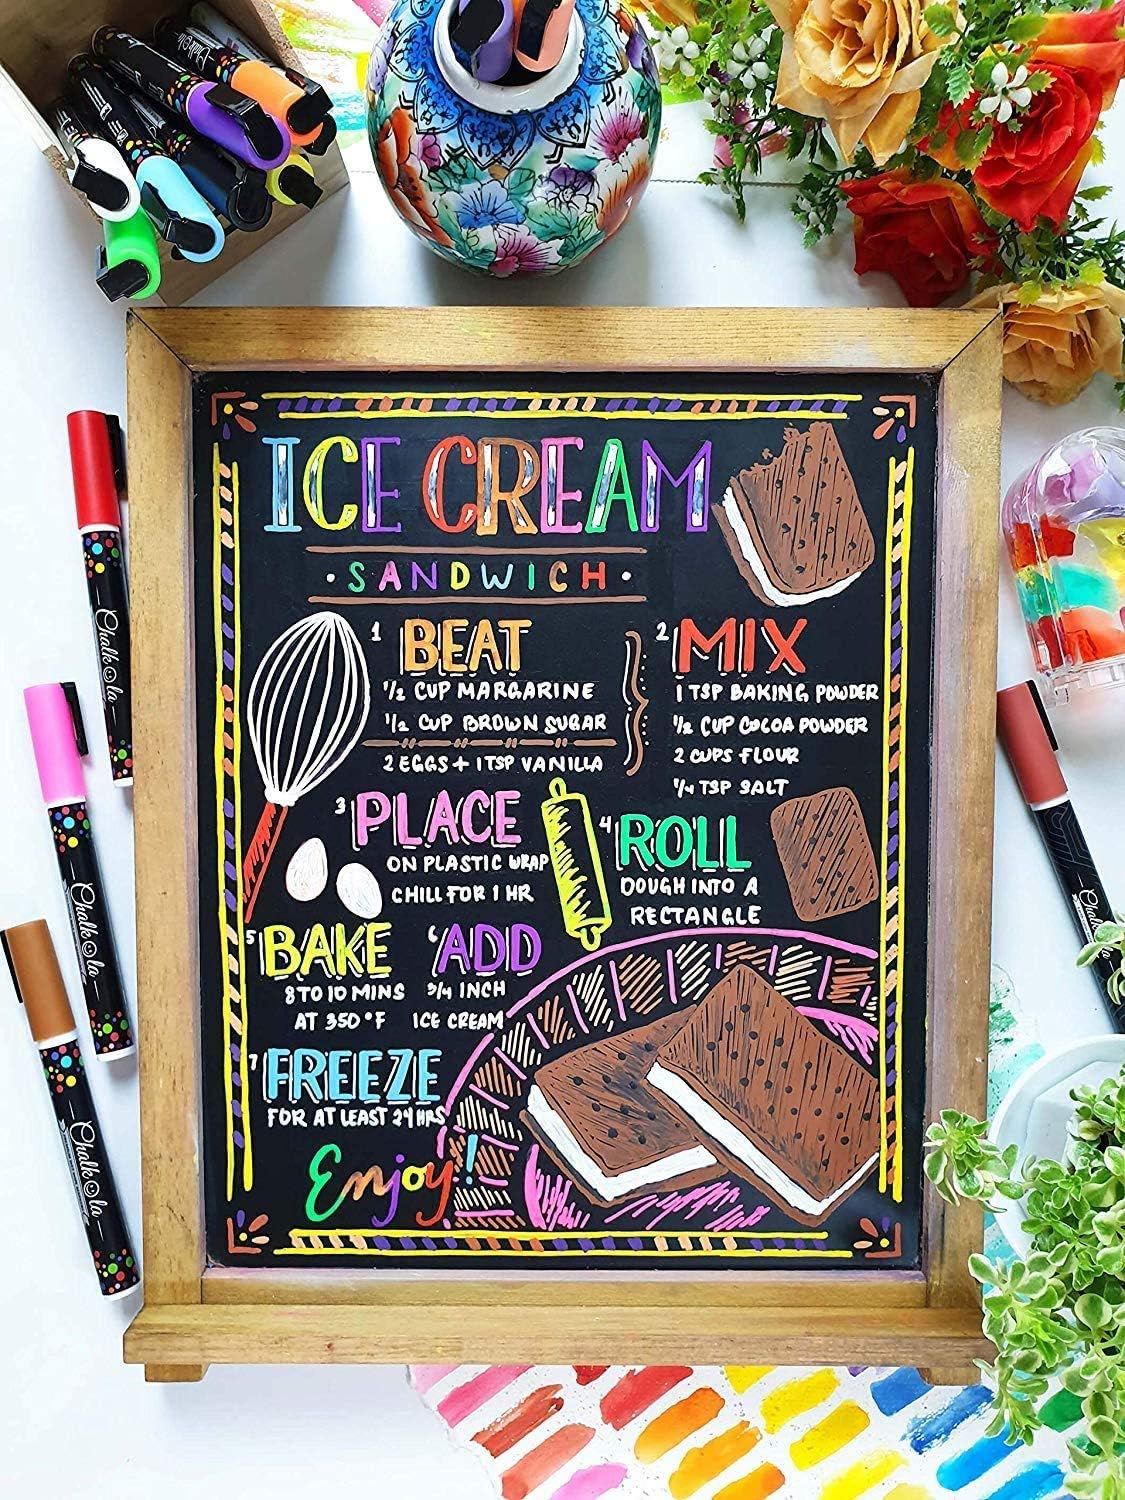 ICE CREAM
• SANDWICH •
1 BEAT
1/2 CUP MARGARINE
1/2 CUP BROWN SUGAR
2 EGGS + 1 TSP VANILLA
2 MIX
1 TSP BAKING POWDER
1/2 CUP COCOA POWDER
2 CUPS FLOUR
1/4 TSP SALT
3 PLACE
ON PLASTIC WRAP
CHILL FOR 1 HR
4 ROLL
DOUGH INTO A
RECTANGLE
5 BAKE
8 TO 10 MINS
AT 350°F
6 ADD
3/4 INCH
ICE CREAM
7 FREEZE
FOR AT LEAST 24 HRS
Enjoy!
Chalkola
Chalkola
Chalkola
Chalkola
Chalkola